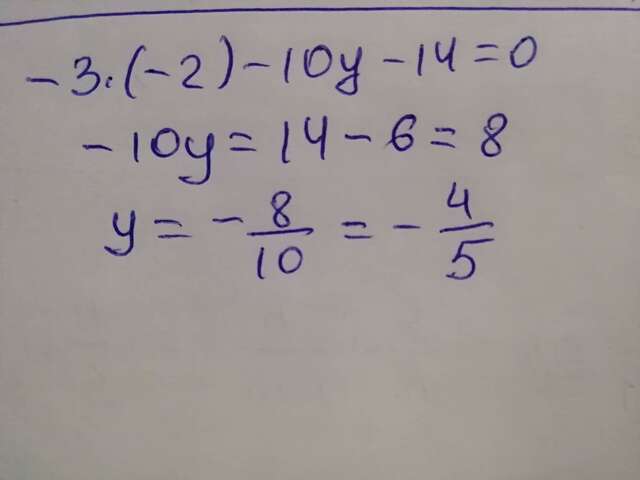 -3·(-2)-10y-14=0
-10y=14-6=8
y=-8/10=-4/5